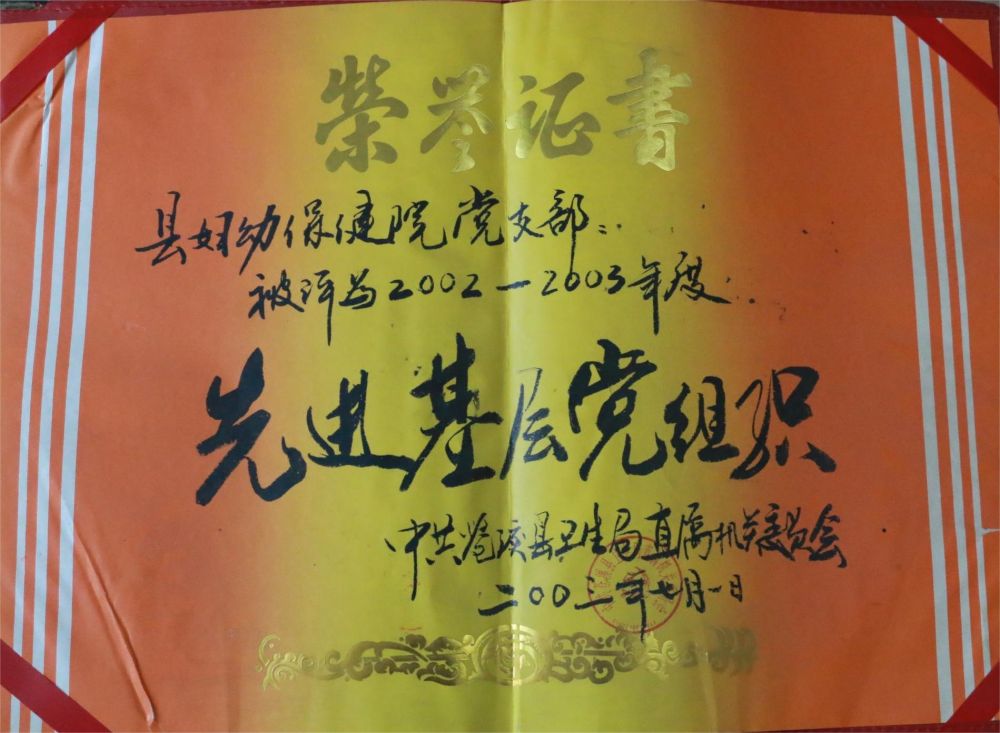 荣誉证书
县妇幼保健院党支部:
被评为2002—2003年度
先进基层党组织
中共苍溪县卫生局直属机关委员会
二00三年七月一日